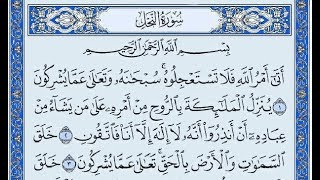 سُورَةُ النَّحْلِ
بِسْمِ اللَّهِ الرَّحْمَٰنِ الرَّحِيمِ
أَتَىٰ أَمْرُ اللَّهِ فَلَا تَسْتَعْجِلُوهُ ۚ سُبْحَانَهُ وَتَعَالَىٰ عَمَّا يُشْرِكُونَ
١ يُنَزِّلُ الْمَلَائِكَةَ بِالرُّوحِ مِنْ أَمْرِهِ عَلَىٰ مَن يَشَاءُ مِنْ
عِبَادِهِ أَنْ أَنذِرُوا أَنَّهُ لَا إِلَٰهَ إِلَّا أَنَا فَاتَّقُونِ ٢ خَلَقَ
السَّمَاوَاتِ وَالْأَرْضَ بِالْحَقِّ ۚ تَعَالَىٰ عَمَّا يُشْرِكُونَ ٣ خَلَقَ